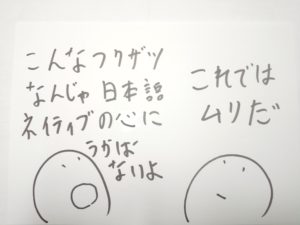 こんなフクザツ
なんじゃ日本語
ネイティブの心に
うかば
ないよ
これでは
ムリだ